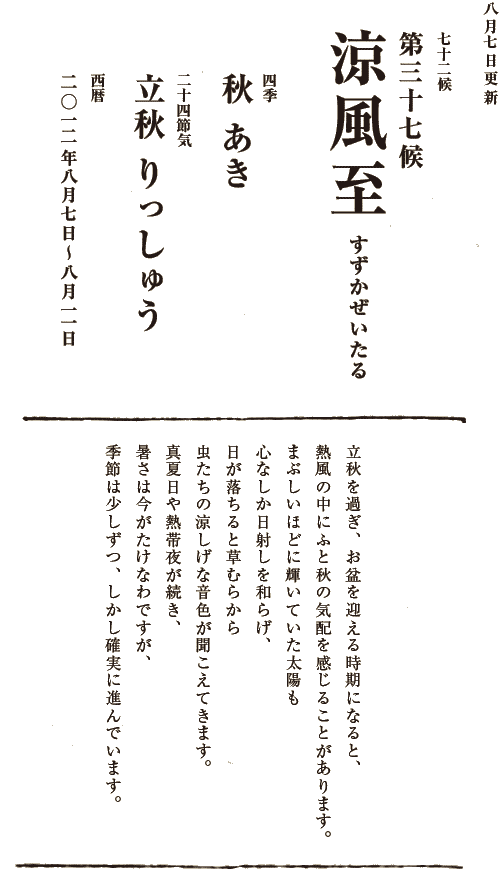 八月七日更新
七十二候
第三十七候
涼風至 すずかぜいたる
四季
秋 あき
二十四節気
立秋 りっしゅう
西暦
二〇一二年八月七日〜八月一一日
立秋を過ぎ、お盆を迎える時期になると、
熱風の中にふと秋の気配を感じることがあります。
まぶしいほどに輝いていた太陽も
心なしか日射しを和らげ、
日が落ちると草むらから
虫たちの涼しげな音色が聞こえてきます。
真夏日や熱帯夜が続き、
暑さは今がたけなわですが、
季節は少しずつ、しかし確実に進んでいます。